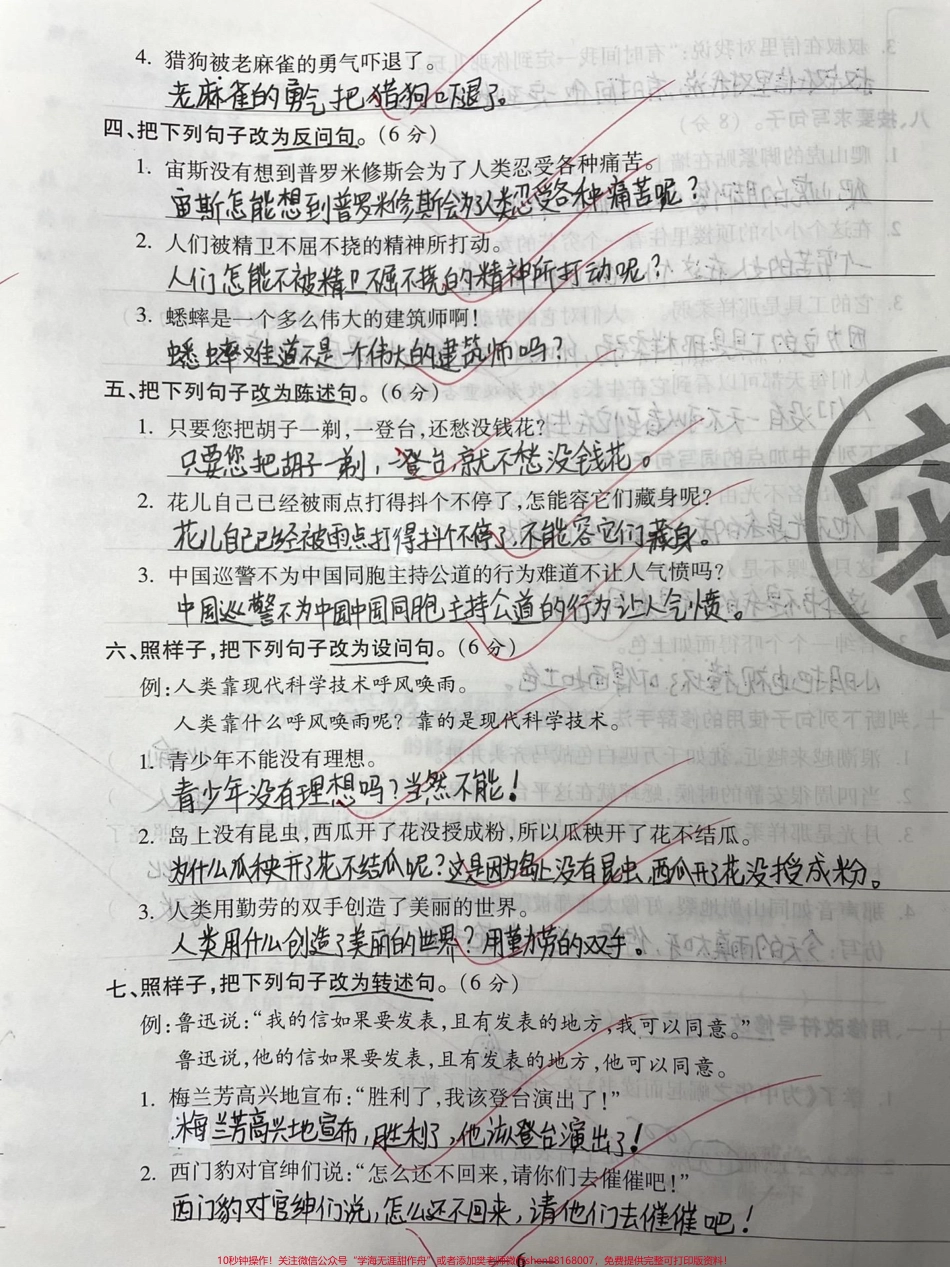 4. 猎狗被老麻雀的勇气吓退了。
老麻雀的勇气把猎狗吓退了。
四、把下列句子改为反问句。(6 分)
1. 宙斯没有想到普罗米修斯会为了人类忍受各种痛苦。
宙斯怎能想到普罗米修斯会为人类忍受各种痛苦呢?
2. 人们被精卫不屈不挠的精神所打动。
人们怎能不被精卫不屈不挠的精神所打动呢?
3. 蟋蟀是一个多么伟大的建筑师啊!
蟋蟀难道不是一个伟大的建筑师吗?
五、把下列句子改为陈述句。(6 分)
1. 只要您把胡子一剃,一登台,还愁没钱花?
只要您把胡子一剃,一登台,就不愁没钱花。
2. 花儿自己已经被雨点打得抖个不停了,怎能容它们藏身呢?
花儿自己已经被雨点打得抖个不停了,不能容它们藏身。
3. 中国巡警不为中国同胞主持公道的行为难道不让人气愤吗?
中国巡警不为中国中国同胞主持公道的行为让人气愤。
六、照样子,把下列句子改为设问句。(6 分)
例:人类靠现代科学技术呼风唤雨。
人类靠什么呼风唤雨呢? 靠的是现代科学技术。
1. 青少年不能没有理想。
青少年没有理想吗?当然不能!
2. 岛上没有昆虫,西瓜开了花没授成粉,所以瓜秧开了花不结瓜。
为什么瓜秧开了花不结瓜呢?这是因为岛上没有昆虫,西瓜开了花没授成粉。
3. 人类用勤劳的双手创造了美丽的世界。
人类用什么创造了美丽的世界?用勤劳的双手。
七、照样子,把下列句子改为转述句。(6 分)
例:鲁迅说:“我的信如果要发表,且有发表的地方,我可以同意。”
鲁迅说,他的信如果要发表,且有发表的地方,他可以同意。
1. 梅兰芳高兴地宣布:“胜利了,我该登台演出了!”
梅兰芳高兴地宣布,胜利了,他该登台演出了!
2. 西门豹对官绅们说:“怎么还不回来,请你们去催催吧!”
西门豹对官绅们说,怎么还不回来,请他们去催催吧!
6
10秒钟操作!关注微信公众号“学海无涯甜作舟”或者添加樊老师微信shen88168007,免费提供完整可打印版资料!